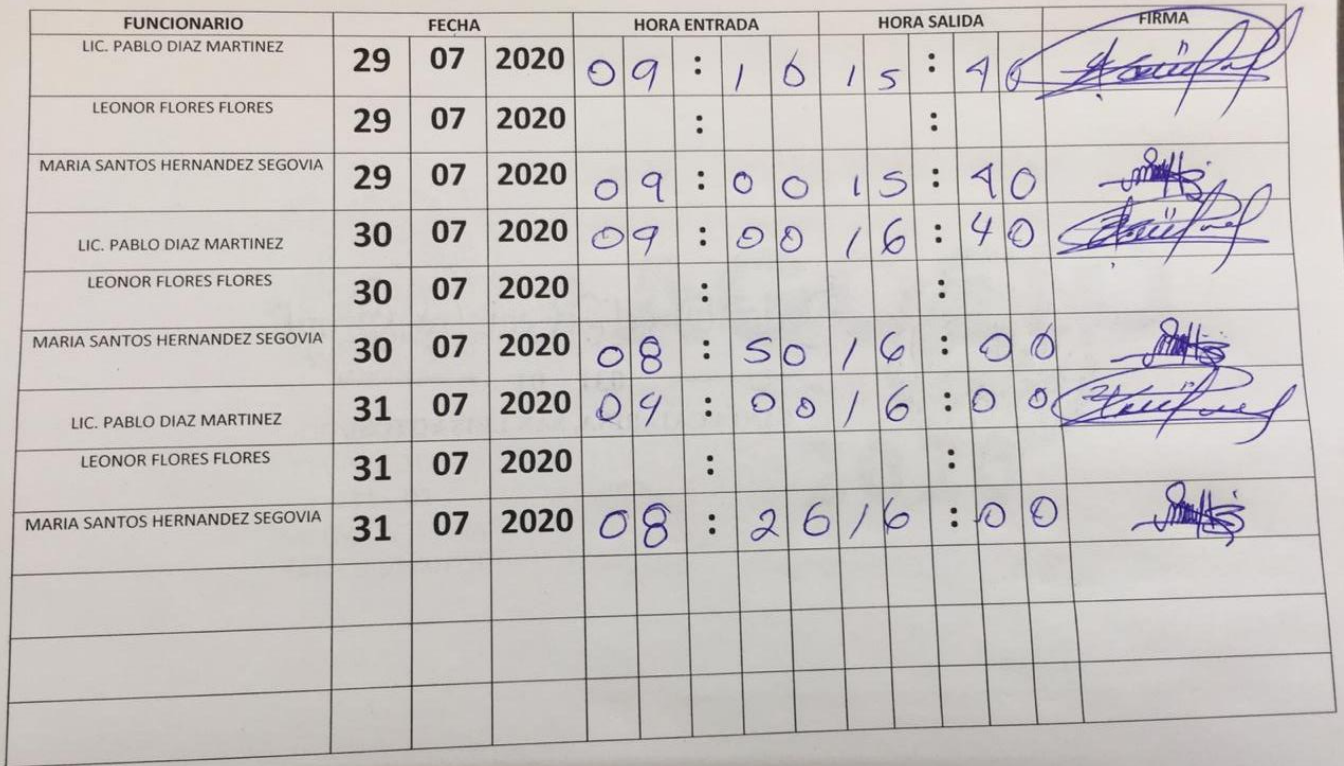 FUNCIONARIO FECHA HORA ENTRADA HORA SALIDA FIRMA
LIC. PABLO DIAZ MARTINEZ 29 07 2020 09 : 10 15 : 40
LEONOR FLORES FLORES 29 07 2020 : :
MARIA SANTOS HERNANDEZ SEGOVIA 29 07 2020 09 : 00 15 : 40
LIC. PABLO DIAZ MARTINEZ 30 07 2020 09 : 00 16 : 40
LEONOR FLORES FLORES 30 07 2020 : :
MARIA SANTOS HERNANDEZ SEGOVIA 30 07 2020 08 : 50 16 : 00
LIC. PABLO DIAZ MARTINEZ 31 07 2020 09 : 00 16 : 00
LEONOR FLORES FLORES 31 07 2020 : :
MARIA SANTOS HERNANDEZ SEGOVIA 31 07 2020 08 : 26 16 : 00